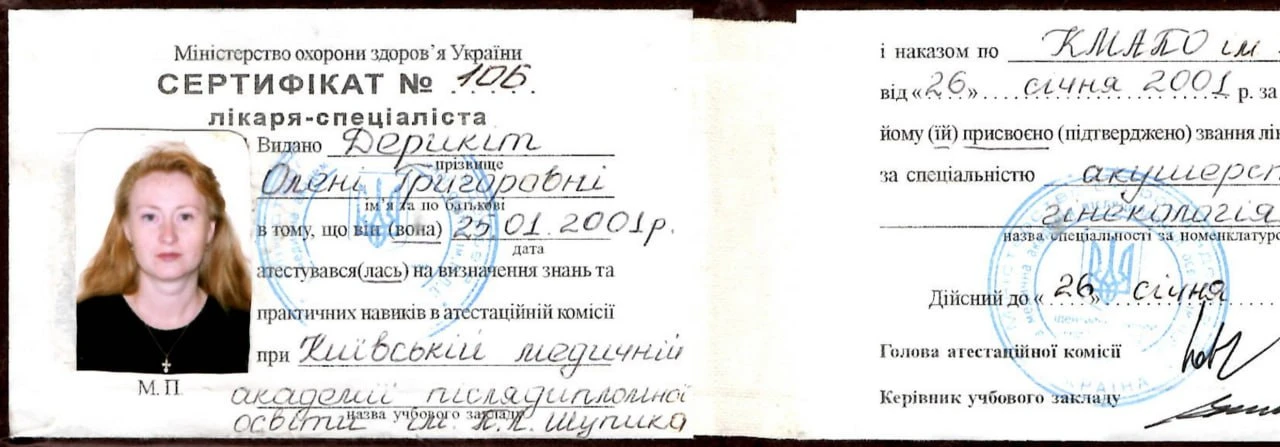 Міністерство охорони здоров'я України
СЕРТИФІКАТ № 106
лікаря-спеціаліста
Видано Дерикіт
прізвище
Олені Григорівні
ім'я та по батькові
в тому, що він (вона) 25.01.2001р.
дата
атестувався(лась) на визначення знань та
практичних навиків в атестаційній комісії
при Київській медичній
академії післядипломної
назва учбового закладу
освіти ім. П.Л. Шупика
М. П
і наказом по КМАПО ім
від «26» січня 2001 р. за
йому (їй) присвоєно (підтверджено) звання лік
за спеціальністю акушерст
гінекологія
назва спеціальності за номенклатур
Дійсний до «26» січня
Голова атестаційної комісії
Керівник учбового закладу
УКРАЇНА